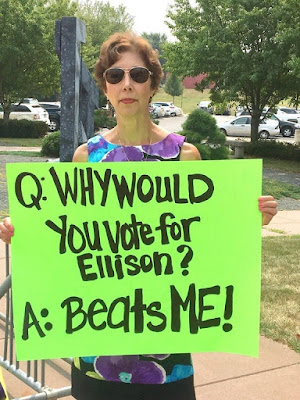 Q: WHY WOULD
YOU VOte for
EllisoN?
A: BeAts ME!